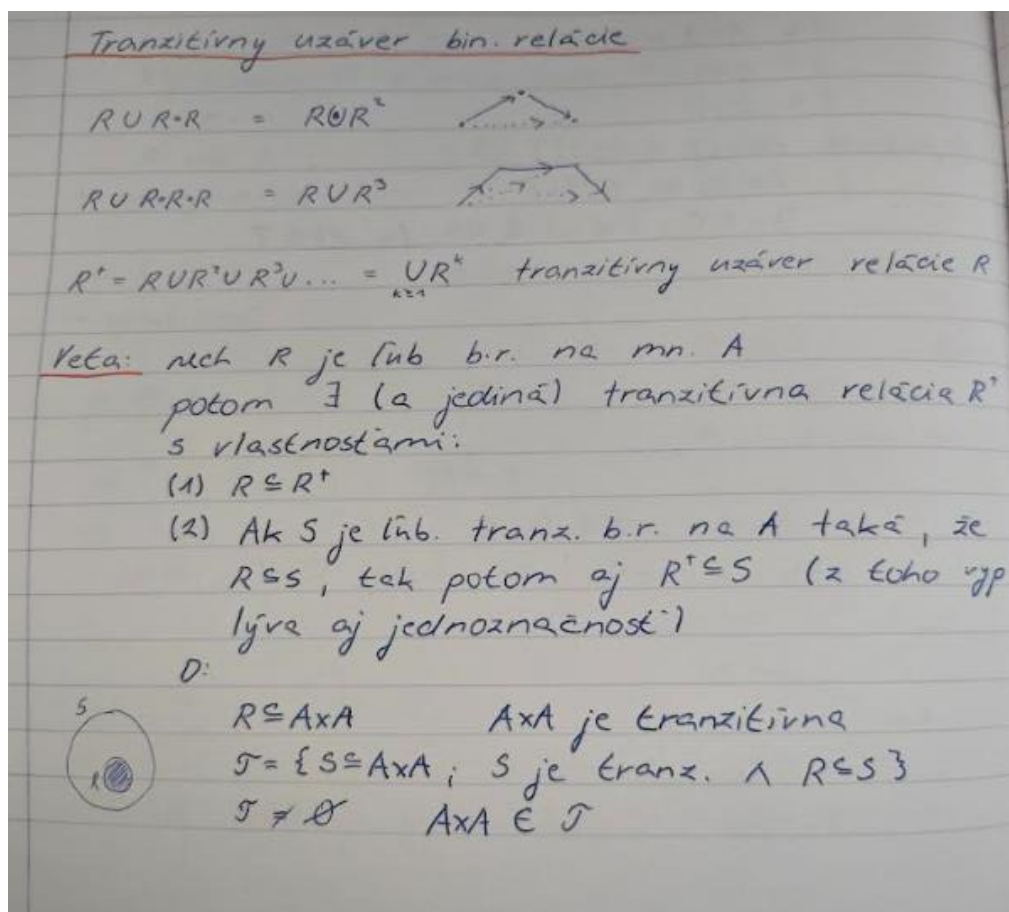 Tranzitívny uzáver bin. relácie
R ∪ R∘R = R ∪ R²
R ∪ R∘R∘R = R ∪ R³
R⁺ = R ∪ R² ∪ R³ ∪ ... = ∪ R^k tranzitívny uzáver relácie R
k≥1
Veta: nech R je ľub b.r. na mn. A
potom ∃ (a jediná) tranzitívna relácia R⁺
s vlastnosťami:
(1) R ⊆ R⁺
(2) Ak S je ľub. tranz. b.r. na A taká, že
R ⊆ S, tak potom aj R⁺ ⊆ S (z toho vyp
lýva aj jednoznačnosť)
D:
S
R ⊆ A×A A×A je tranzitívna
R
𝒯 = { S ⊆ A×A ; S je tranz. ∧ R ⊆ S }
𝒯 ≠ ∅ A×A ∈ 𝒯